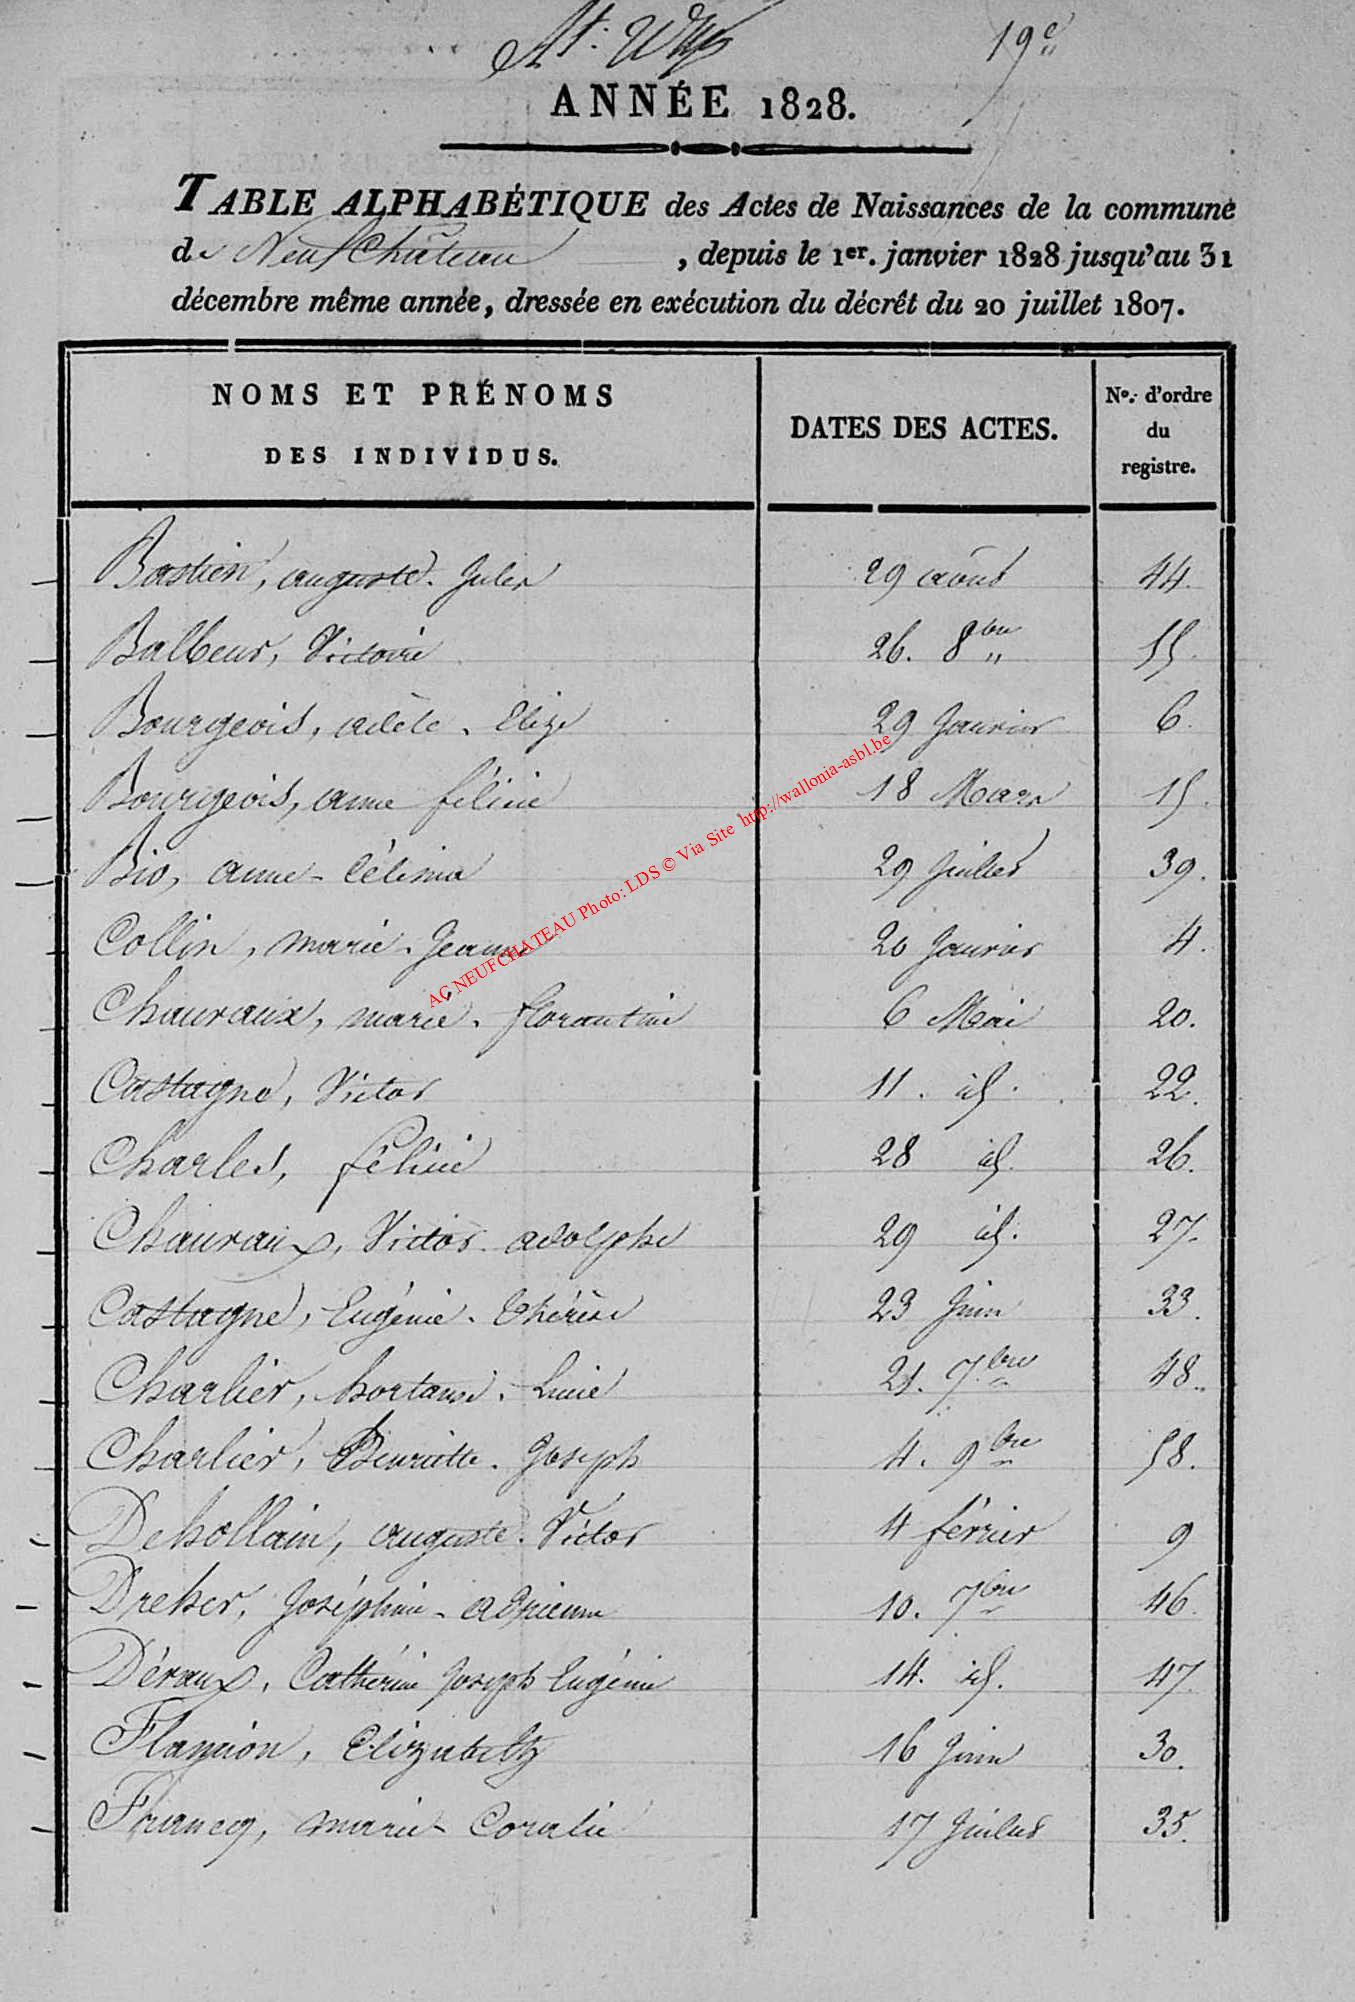 19e
ANNÉE 1828.
TABLE ALPHABÉTIQUE des Actes de Naissances de la commune
de Neufchâteau, depuis le 1er. janvier 1828 jusqu'au 31
décembre même année, dressée en exécution du décrêt du 20 juillet 1807.
NOMS ET PRÉNOMS DES INDIVIDUS. DATES DES ACTES. No. d'ordre du registre.
Bastien, auguste. Jules 29 août 44.
Balbeur, Victoire 26. 8bre 55.
Bourgeois, adèle. Elize 29 Janvier 6.
Bourgeois, anne félicie 18 Mars 15.
Bio, anne-Célina 29 Juillet 39.
Collin, marie. Jeanne 20 Janvier 4.
Chauvaux, marie. florantine 6 Mai 20.
Castagne, Victor 11. id. 22.
Charles, félicie 28 id. 26.
Chauvaux, Victor. adolphe 29 id. 27.
Castagne, Eugénie. Thérèse 23 Juin 33.
Charlier, hortanse. Lucie 21. 7bre 48.
Charlier, Henriette. Joseph 4. 9bre 58.
Dehollain, auguste. Victor 4 février 9
Dreher, Joséphine-adrienne 10. 7bre 46.
Déraux, Cathérine Joseph Eugénie 14. id. 47.
Flamion, Elizabeth 16 Juin 30.
Francq, marie-Coralie 17 Juillet 35.
AC NEUFCHATEAU Photo: LDS © Via Site http://wallonia-asbl.be